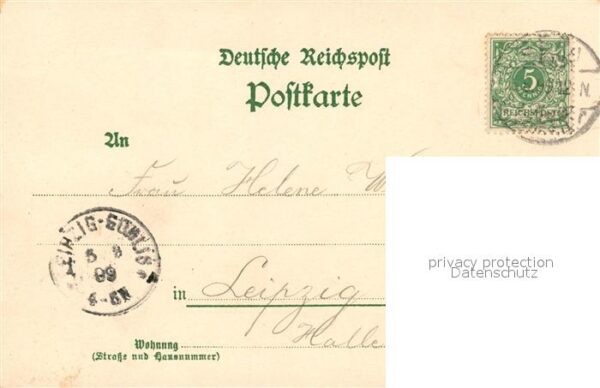 Deutsche Reichspost
Postkarte
5
REICHSPOST
12 N
An
Frau Helene W
privacy protection
Datenschutz
LEIPZIG-GOHLIS
5 8
99
4-5N
in Leipzig
Halle
Wohnung
(Straße und Hausnummer)